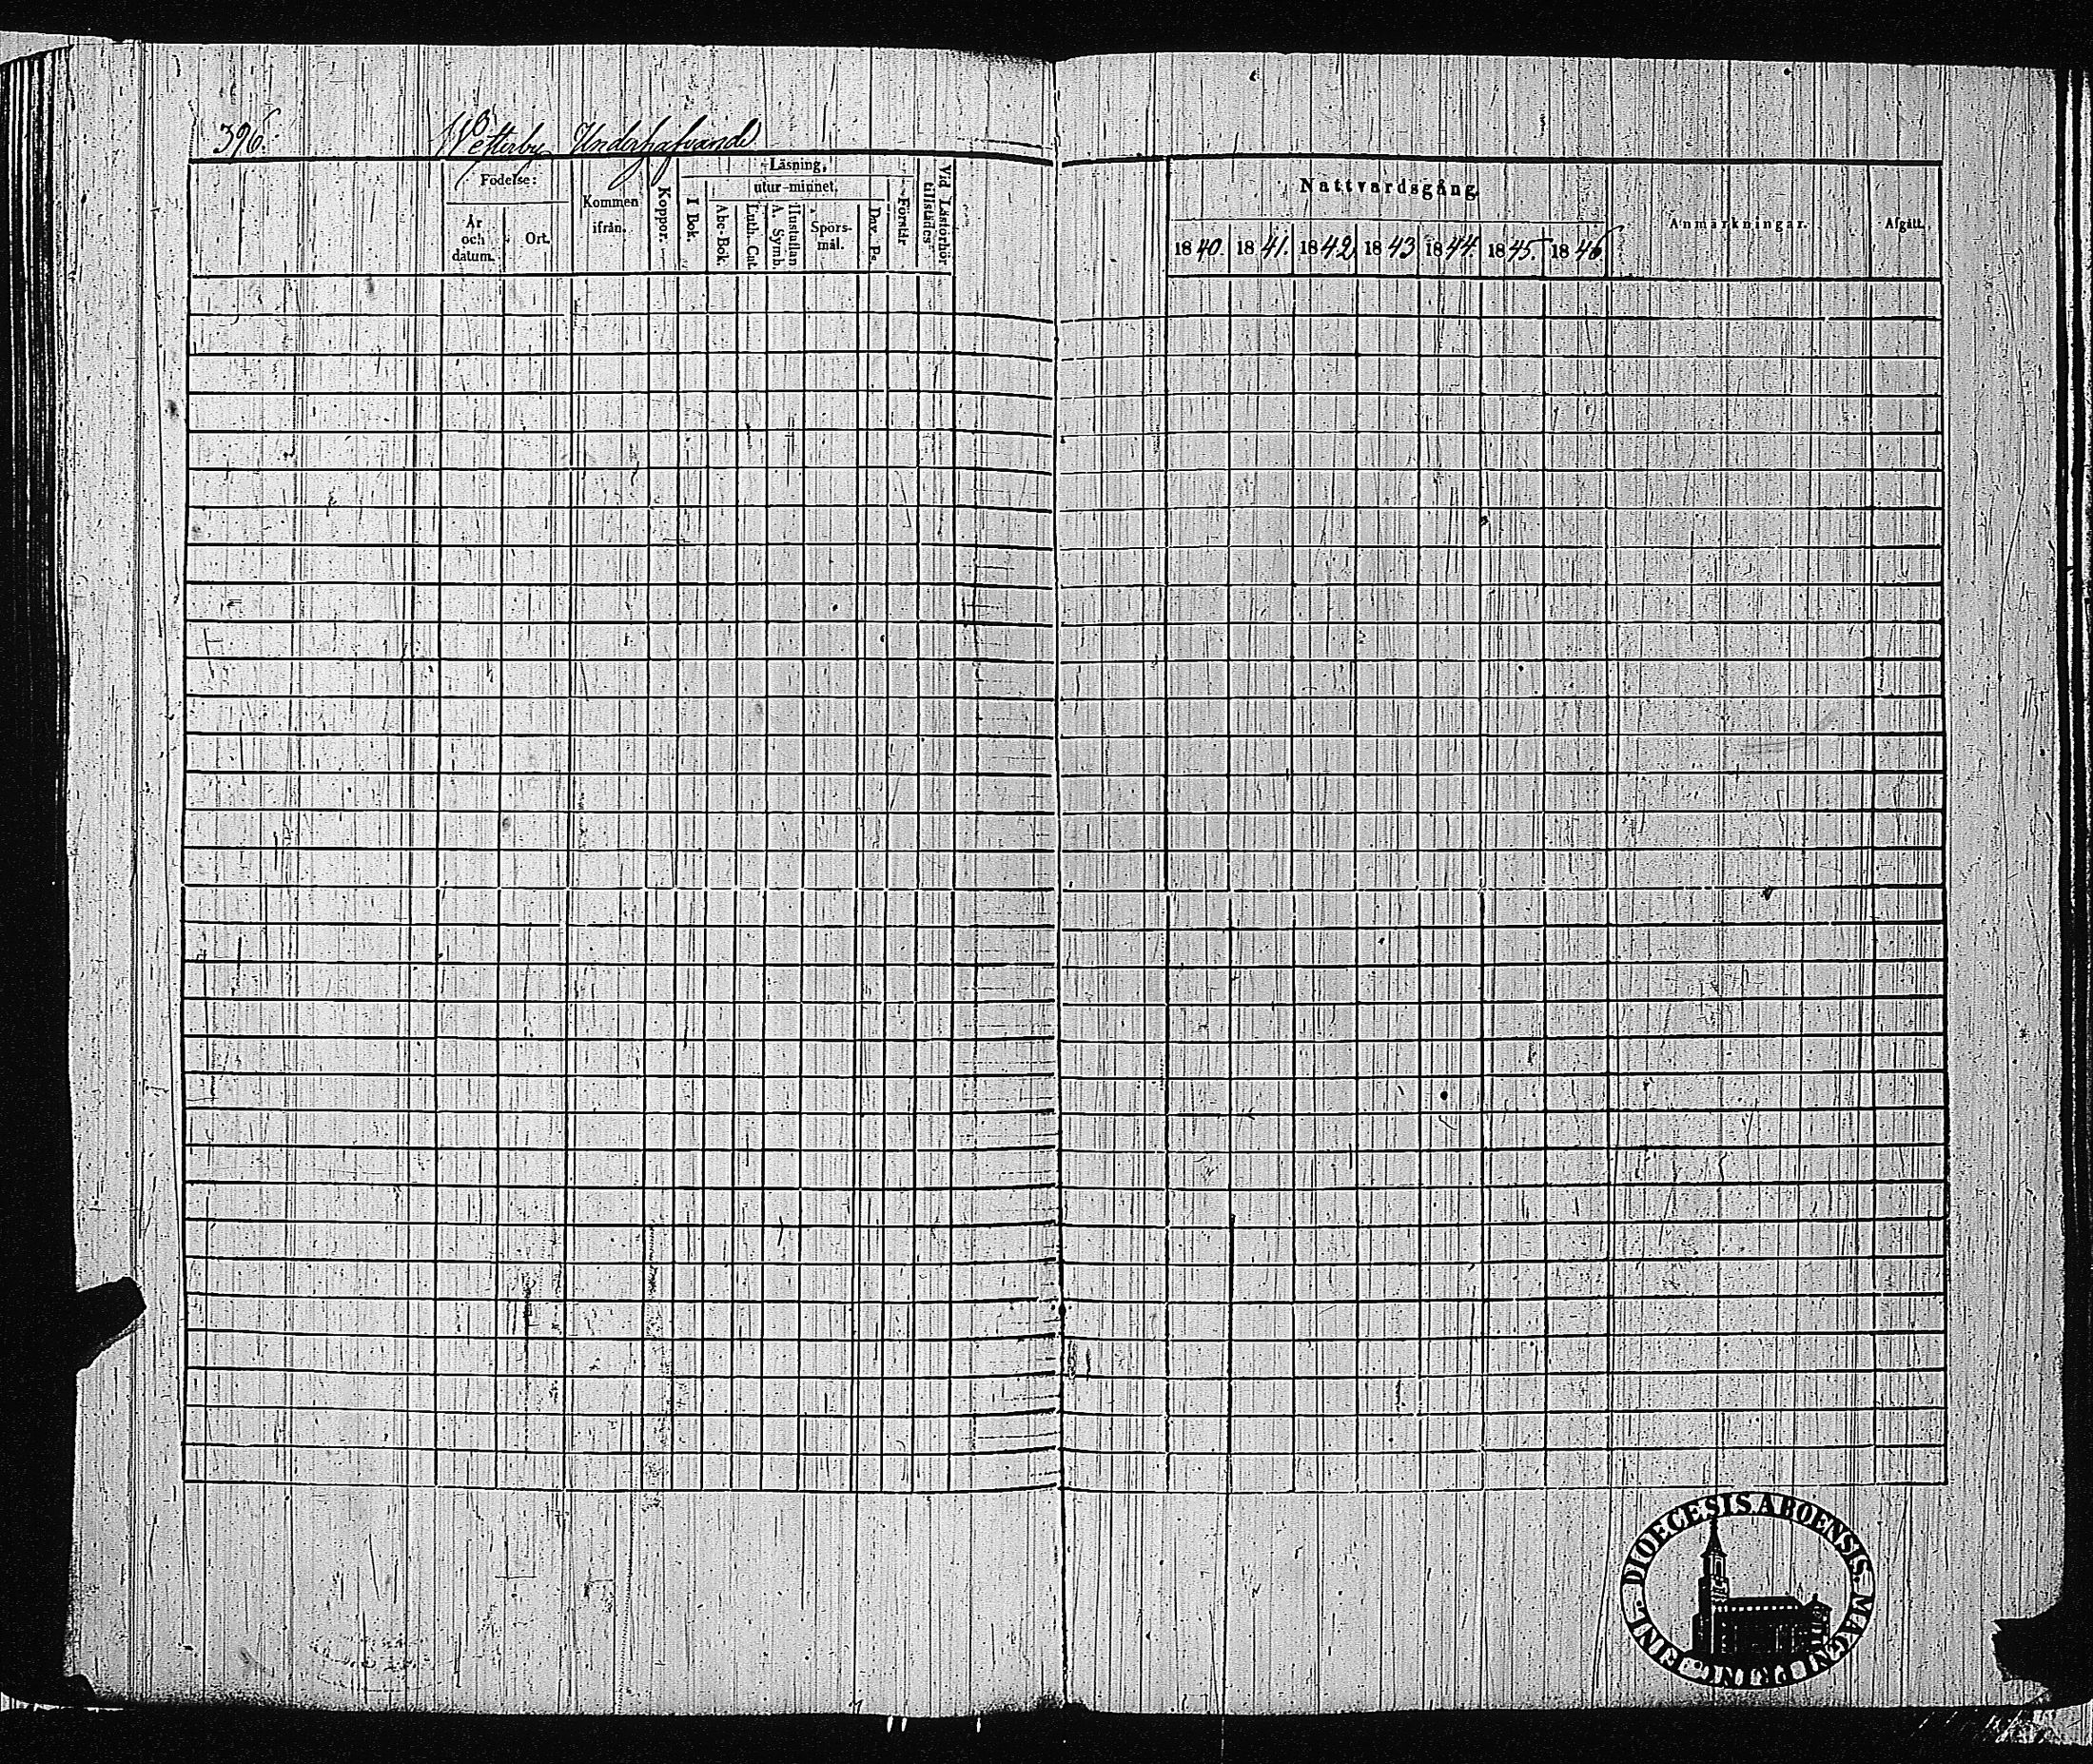 396.
Westerby Underhafvande
Födelse:
År och datum.
Ort.
Kommen ifrån.
Koppor.
Läsning,
I Bok.
utur minnet.
Abc-Bok.
Luth. Cat.
A. Symb.
Hustaflan
Spörs-mål.
Dav. Ps.
Förstår
Vid Läsförhör tillstädes
Nattvardsgång
1840. 1841. 1842 1843 1844. 1845. 1846
Anmärkningar.
Afgått.
DIOECESIS. ABOENSIS. MAGNI PRINC. FINL.